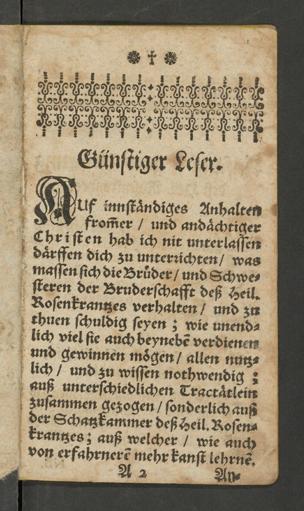 Günstiger Leser.
AUf innständiges Anhalten
from̃er / und andächtiger
Christen hab ich nit unterlassen
därffen dich zu unterrichten / was
massen sich die Brüder / und Schwe-
steren der Bruderschafft deß Heil.
Rosenkrantzes verhalten / und zu
thuen schuldig seyen ; wie unend-
lich viel sie auch beynebẽ verdienen
und gewinnen mögen / allen nutz-
lich / und zu wissen nothwendig ;
auß unterschiedlichen Tractätlein
zusammen gezogen / sonderlich auß
der Schatzkammer deß Heil. Rosen-
krantzes ; auß welcher / wie auch
von erfahrnerẽ mehr kanst lehrnẽ.
A 2 An-